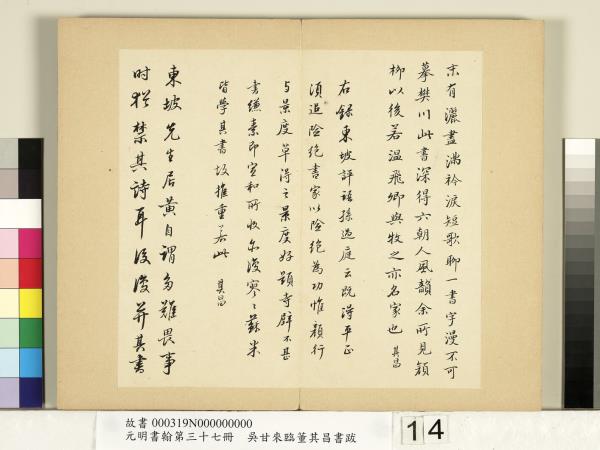 末有灑盡滿衿淚短歌聊一書字漫不可
摹樊川此書深得六朝人風韻余所見顏
柳以後若溫飛卿與牧之亦名家也 其昌
右錄東坡評語孫過庭云既得平正
須追險絕書家以險絕為功惟顏行
與景度草得之景度好題寺壁不甚
書縑素即宣和所收亦復寥寥蘇米
皆學其書故推重若此 其昌
東坡先生居黃自謂多難畏事
時猶禁其詩耳後復并其書
故書000319N000000000
元明書翰第三十七冊 吳甘來臨董其昌書跋
14